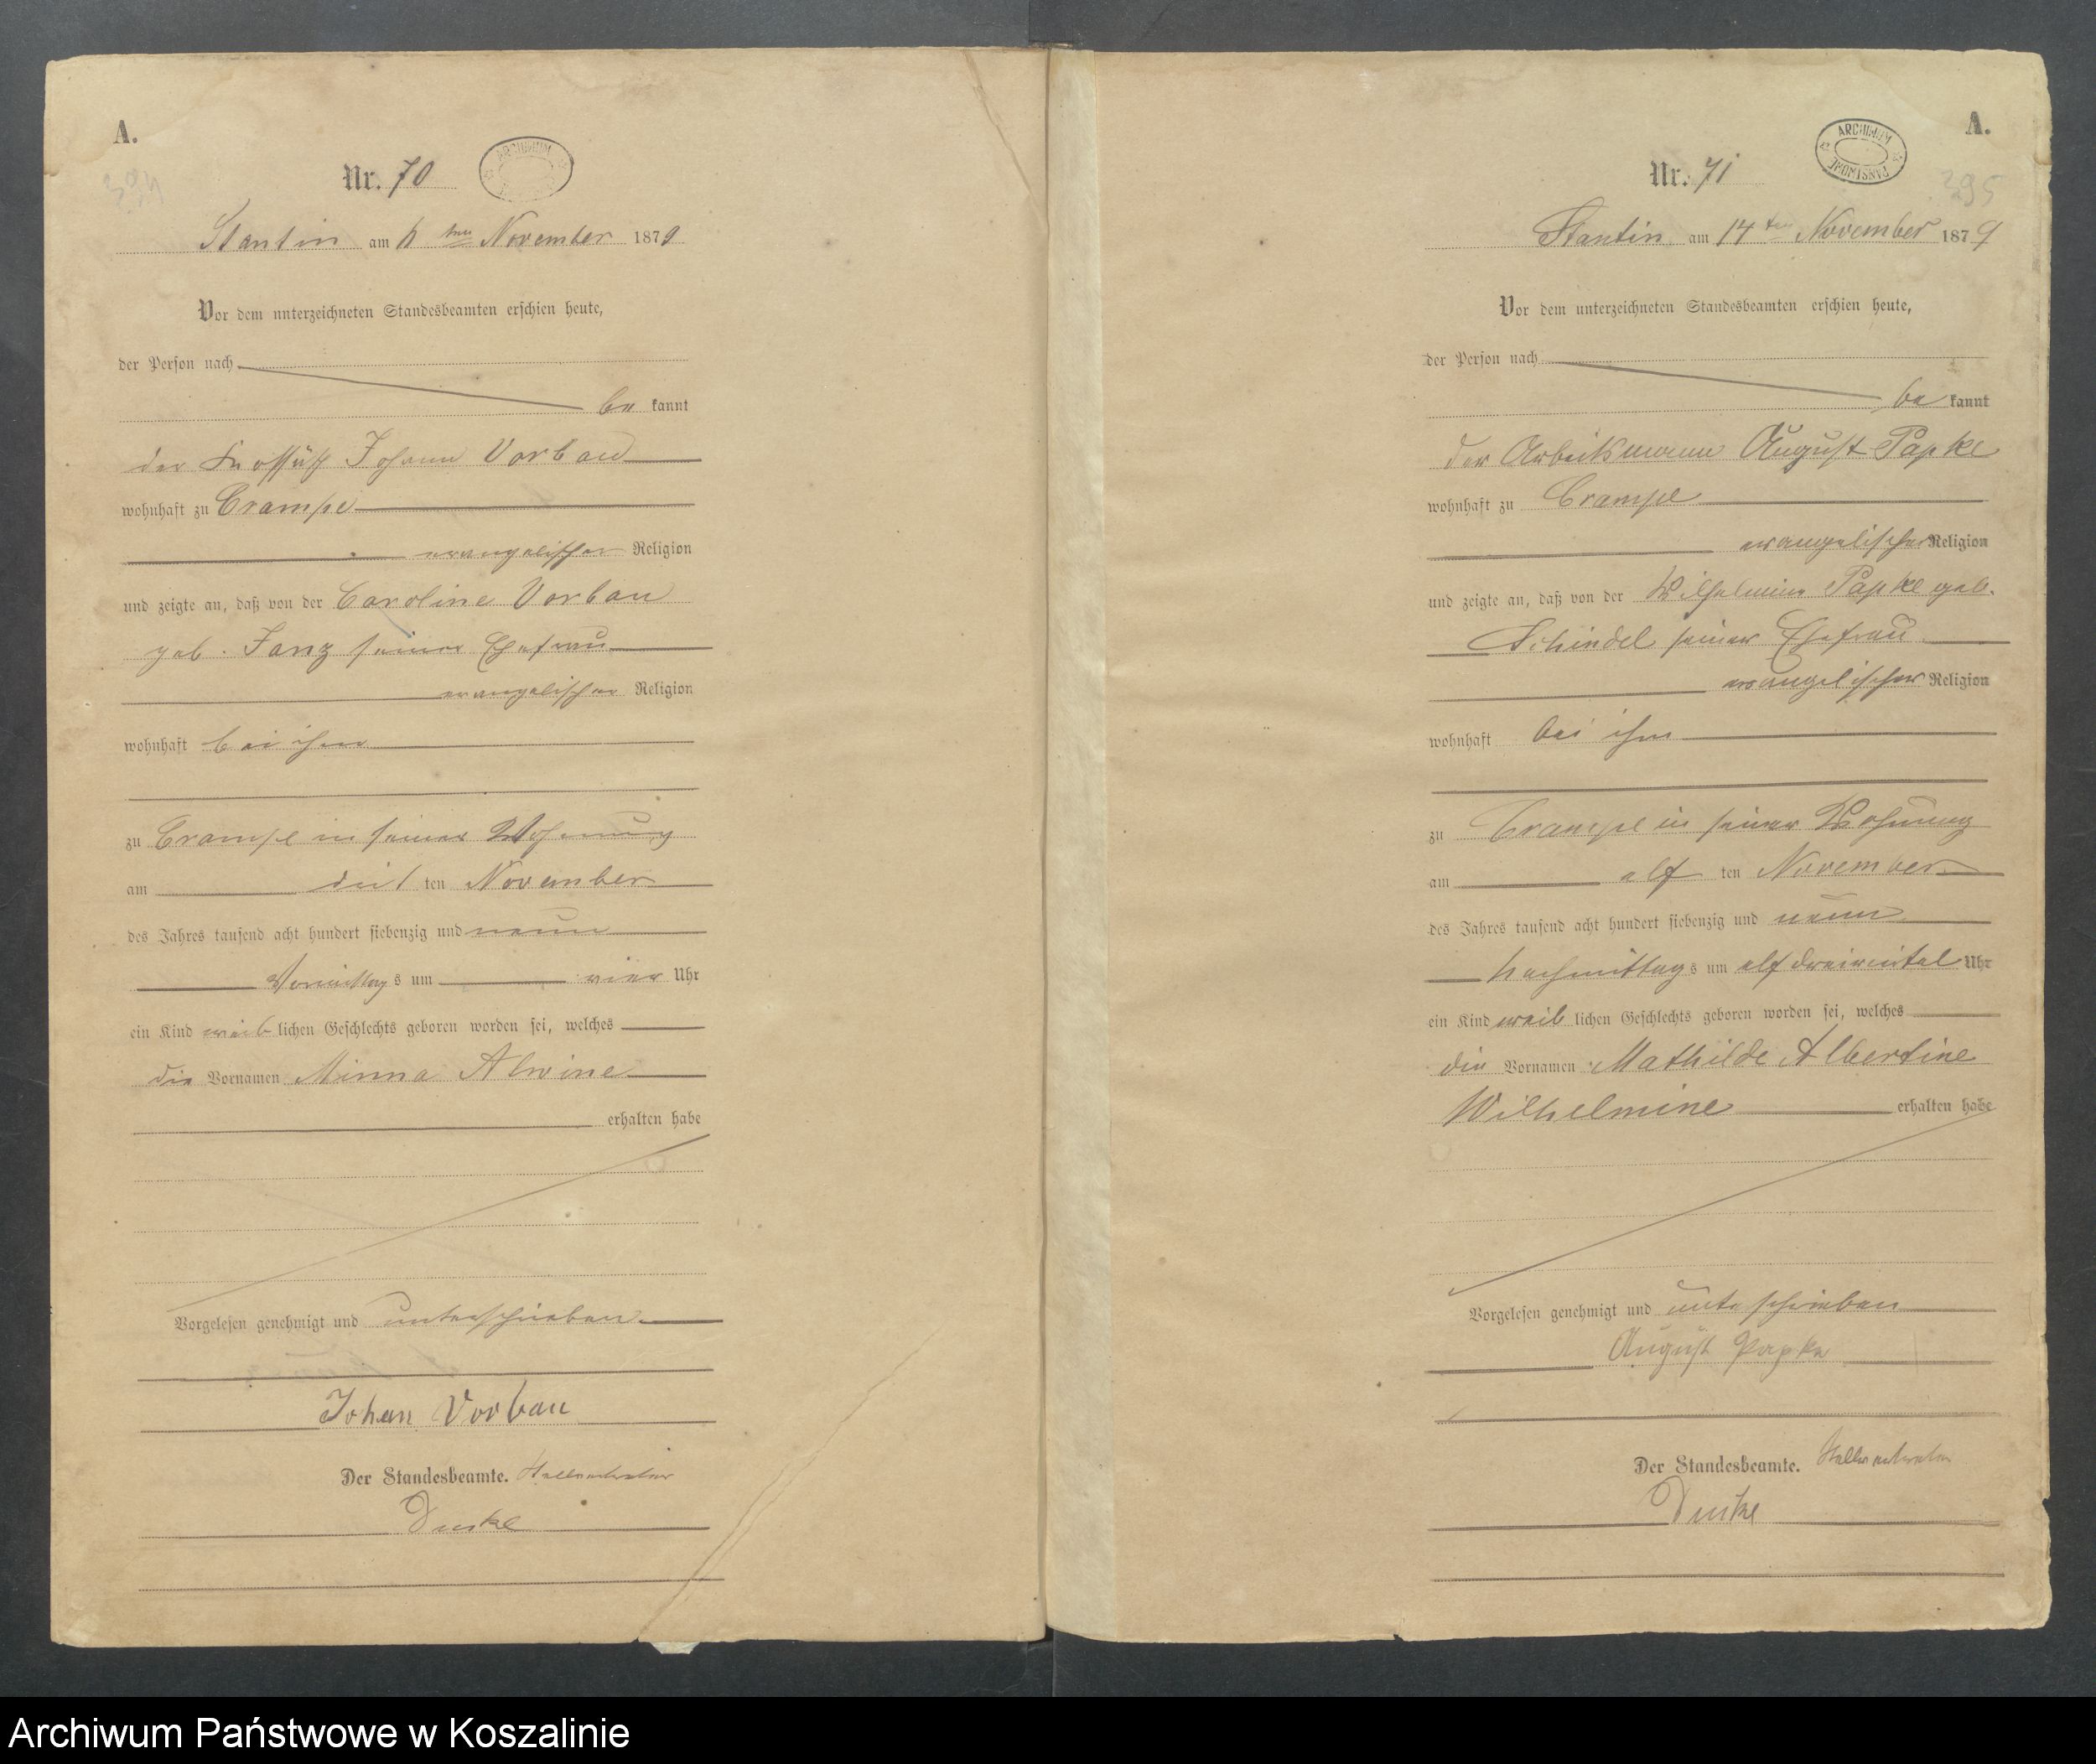 A.
Nr. 70
ARCHIWUM
Stantin am ten November 1879
Vor dem unterzeichneten Standesbeamten erschien heute,
der Person nach
be kannt
der Johann Vorbau
wohnhaft zu Crampe
evangelischer Religion
und zeigte an, daß von der Caroline Vorbau
geb. Janz seiner Ehefrau
evangelischer Religion
wohnhaft bei ihm
zu Crampe in seiner Wohnung
am ten November
des Jahres tausend acht hundert siebenzig und neun
Vormittags um vier Uhr
ein Kind weiblichen Geschlechts geboren worden sei, welches
die Vornamen Minna Alwine
erhalten habe
Vorgelesen genehmigt und unterschrieben
Johan Vorbau
Der Standesbeamte. Stellvertreter
A.
Nr. 71
ARCHIWUM PAŃSTWOWE
295
Stantin am 14ten November 1879
Vor dem unterzeichneten Standesbeamten erschien heute,
der Person nach
be kannt
der Arbeitsmann August Papke
wohnhaft zu Crampe
evangelischer Religion
und zeigte an, daß von der Wilhelmine Papke geb.
Schindel seiner Ehefrau
evangelischer Religion
wohnhaft bei ihm
zu Crampe in seiner Wohnung
am elf ten November
des Jahres tausend acht hundert siebenzig und neun
Nachmittags um elf dreiviertel Uhr
ein Kind weiblichen Geschlechts geboren worden sei, welches
die Vornamen Mathilde Albertine
Wilhelmine erhalten habe
Vorgelesen genehmigt und unterschrieben
August Papke
Der Standesbeamte. Stellvertreter
Archiwum Państwowe w Koszalinie